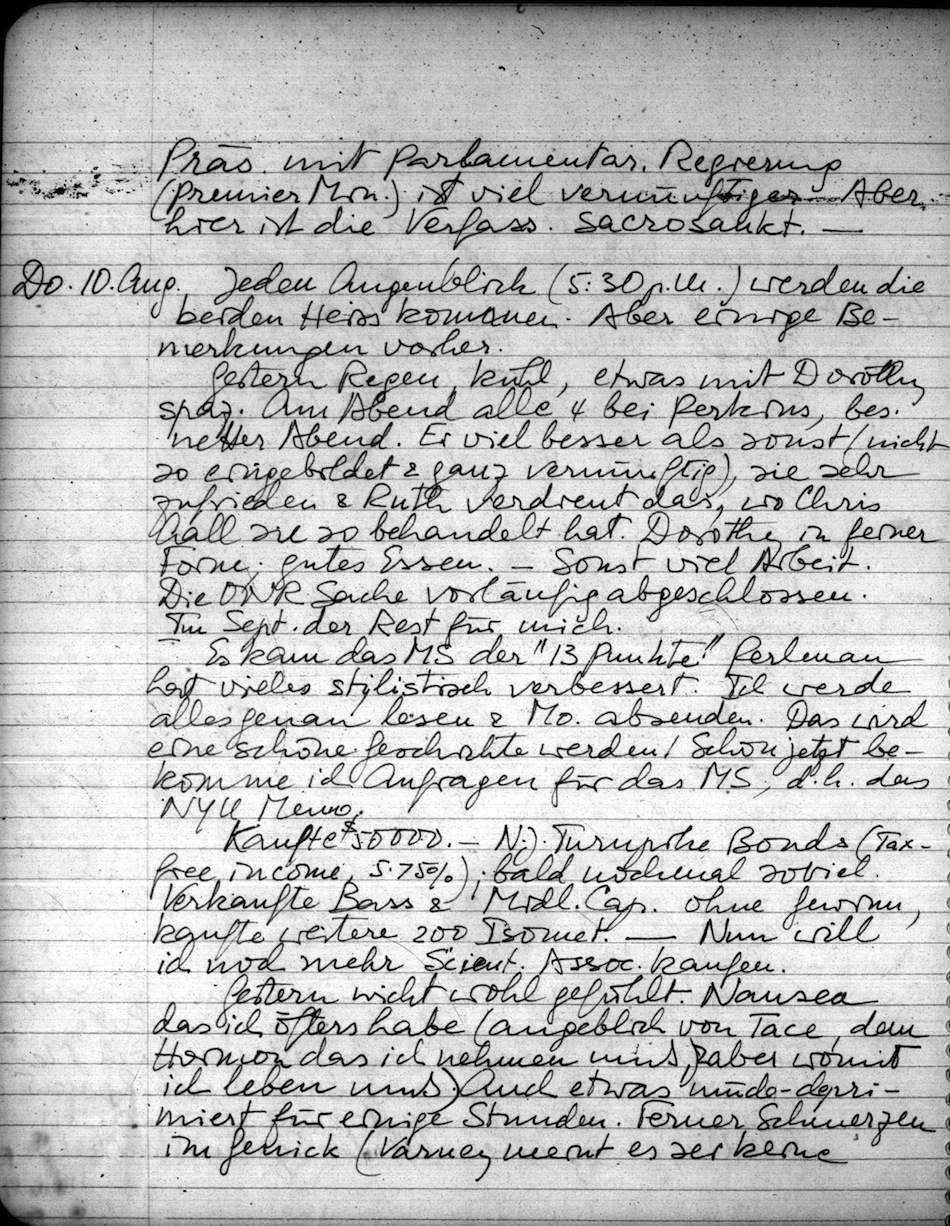 Präs. mit Parlamentar. Regierung
(Premier Min.) ist viel vernünftiger. Aber
hier ist die Verfass. sacrosankt. —
Do. 10. Aug. Jeden Augenblick (5:30 p.m.) werden die
beiden Heiss kommen. Aber einige Be-
merkungen vorher.
Gestern Regen, kühl, etwas mit Dorothy
spaz. Am Abend alle 4 bei Perkins, bes.
netter Abend. Er viel besser als sonst (nicht
so eingebildet & ganz vernünftig), sie sehr
zufrieden & Ruth verdient das, wo Chris
Gall sie so behandelt hat. Dorothy in feiner
Form; gutes Essen. — Sonst viel Arbeit.
Die ONR Sache vorläufig abgeschlossen.
Im Sept. der Rest für mich.
Es kam das MS der "13 Punkte" Perlman
hat vieles stylistisch verbessert. Ich werde
alles genau lesen & Mo. absenden. Das wird
eine schöne Geschichte werden! Schon jetzt be-
komme ich Anfragen für das MS, d.h. das
NYU Memo.
Kaufte $50000.— N.J. Turnpike Bonds (Tax-
free income, 5.75%); bald nochmal soviel.
Verkaufte Bass & Midl. Cap. ohne Gewinn,
kaufte weitere 200 Isomet. — Nun will
ich noch mehr Scient. Assoc. kaufen.
Gestern nicht wohl gefühlt. Nausea
das ich öfters habe (angeblich von Tace, dem
Hormon das ich nehmen muss, aber womit
ich leben muss) Auch etwas müde-depri-
miert für einige Stunden. Ferner Schmerzen
im Genick (Varney meint es sei keine